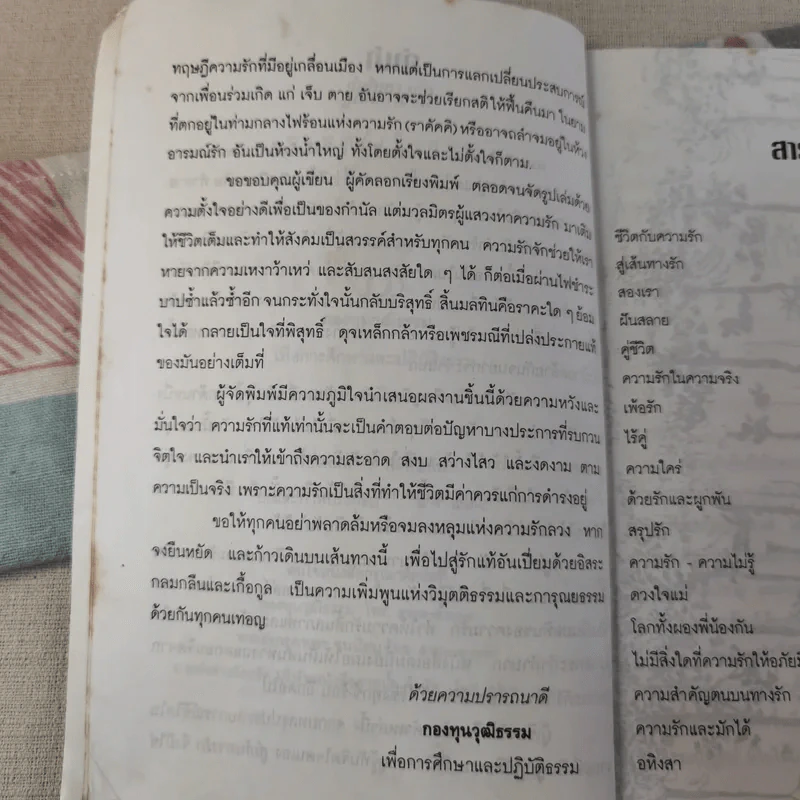 ทฤษฎีความรักที่มีอยู่เกลื่อนเมือง หากแต่เป็นการแลกเปลี่ยนประสบการณ์
จากเพื่อนร่วมเกิด แก่ เจ็บ ตาย อันอาจจะช่วยเรียกสติให้ฟื้นคืนมา ในยาม
ที่ตกอยู่ในท่ามกลางไฟร้อนแห่งความรัก (ราคัคคิ) หรืออาจถลำจมอยู่ในห้วง
อารมณ์รัก อันเป็นห้วงน้ำใหญ่ ทั้งโดยตั้งใจและไม่ตั้งใจก็ตาม.
ขอขอบคุณผู้เขียน ผู้คัดลอกเรียงพิมพ์ ตลอดจนจัดรูปเล่มด้วย
ความตั้งใจอย่างดีเพื่อเป็นของกำนัล แด่มวลมิตรผู้แสวงหาความรัก มาเติม
ให้ชีวิตเต็มและทำให้สังคมเป็นสวรรค์สำหรับทุกคน ความรักจักช่วยให้เรา
หายจากความเหงาว้าเหว่ และสับสนสงสัยใด ๆ ได้ ก็ต่อเมื่อผ่านไฟชำระ
บาปซ้ำแล้วซ้ำอีก จนกระทั่งใจนั้นกลับบริสุทธิ์ สิ้นมลทินคือราคะใด ๆ ย้อม
ใจได้ กลายเป็นใจที่พิสุทธิ์ ดุจเหล็กกล้าหรือเพชรมณีที่เปล่งประกายแท้
ของมันอย่างเต็มที่
ผู้จัดพิมพ์มีความภูมิใจนำเสนอผลงานชิ้นนี้ด้วยความหวังและ
มั่นใจว่า ความรักที่แท้เท่านั้นจะเป็นคำตอบต่อปัญหาบางประการที่รบกวน
จิตใจ และนำเราให้เข้าถึงความสะอาด สงบ สว่างไสว และงดงาม ตาม
ความเป็นจริง เพราะความรักเป็นสิ่งที่ทำให้ชีวิตมีค่าควรแก่การดำรงอยู่
ขอให้ทุกคนอย่าพลาดล้มหรือจมลงหลุมแห่งความรักลวง หาก
จงยืนหยัด และก้าวเดินบนเส้นทางนี้ เพื่อไปสู่รักแท้อันเปี่ยมด้วยอิสระ
กลมกลืนและเกื้อกูล เป็นความเพิ่มพูนแห่งวิมุตติธรรมและการุณยธรรม
ด้วยกันทุกคนเทอญ
ด้วยความปรารถนาดี
กองทุนวุฒิธรรม
เพื่อการศึกษาและปฏิบัติธรรม
ชีวิตกับความรัก
สู่เส้นทางรัก
สองเรา
ฝันสลาย
คู่ชีวิต
ความรักในความจริง
เพ้อรัก
ไร้คู่
ความใคร่
ด้วยรักและผูกพัน
สรุปรัก
ความรัก - ความไม่รู้
ดวงใจแม่
โลกทั้งผองพี่น้องกัน
ไม่มีสิ่งใดที่ความรักให้อภัย
ความสำคัญตนบนทางรัก
ความรักและมักได้
อหิงสา